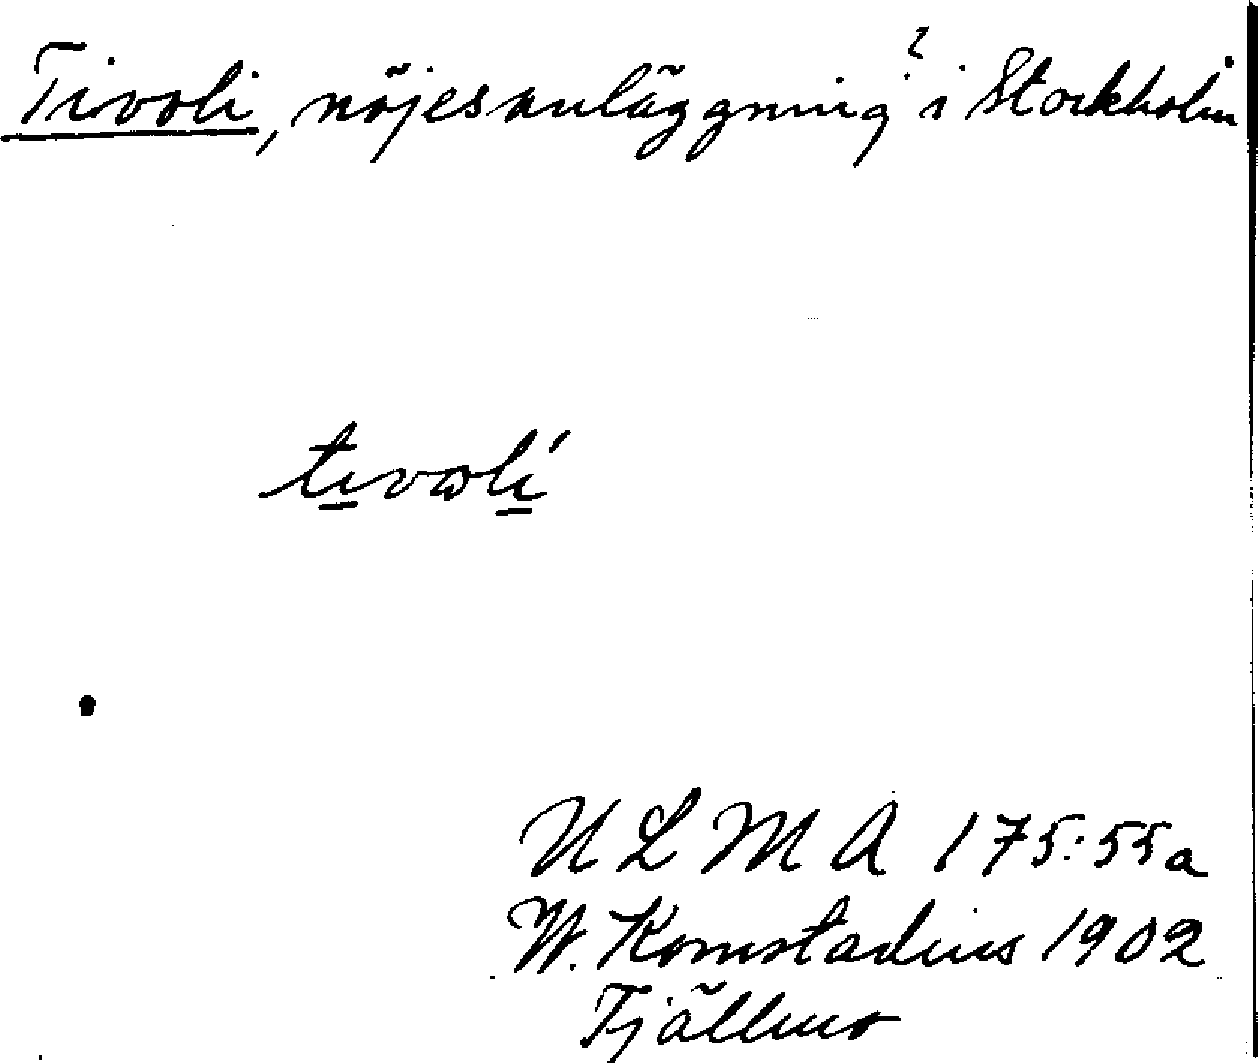 Tivoli, nöjesanläggning? i Stockholm
tivoli´
ULMA 175:55a
W. Komstadius 1902
Fjällmo